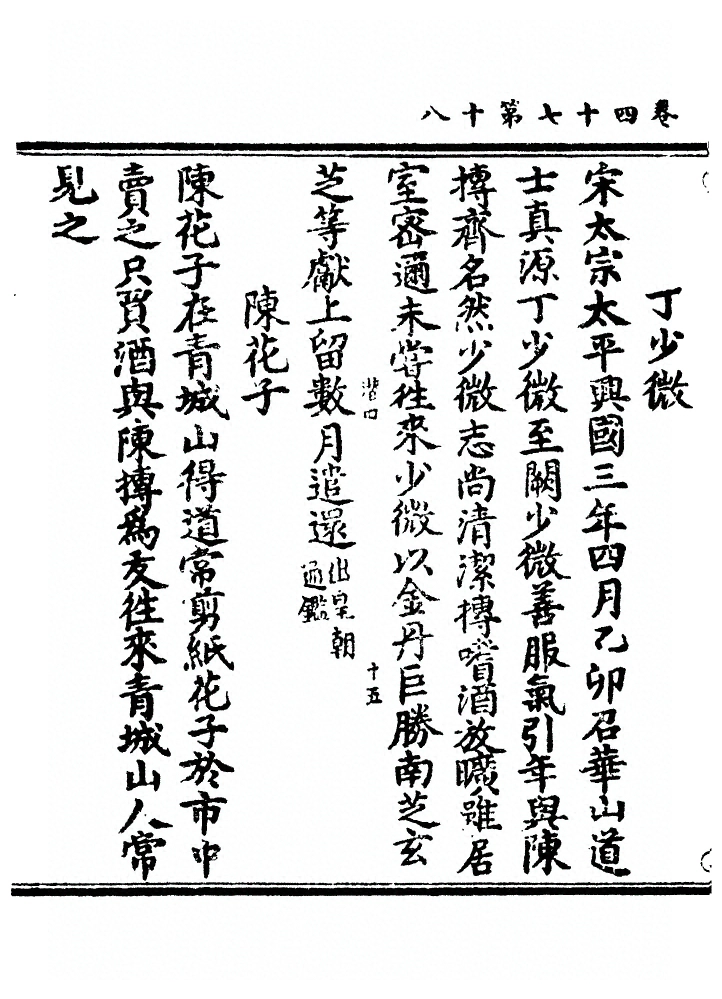 卷四十七第十八
丁少微
宋太宗太平興國三年四月乙卯召華山道
士真源丁少微至闕少微善服氣引年與陳
摶齊名然少微志尚清潔摶嗜酒放曠雖居
室密邇未嘗往來少微以金丹巨勝南芝玄
芝等獻上留數月遣還出皇朝
通鑑
十五
陳花子
陳花子在青城山得道常剪紙花子於市中
賣之只買酒與陳摶為友往來青城山人常
見之